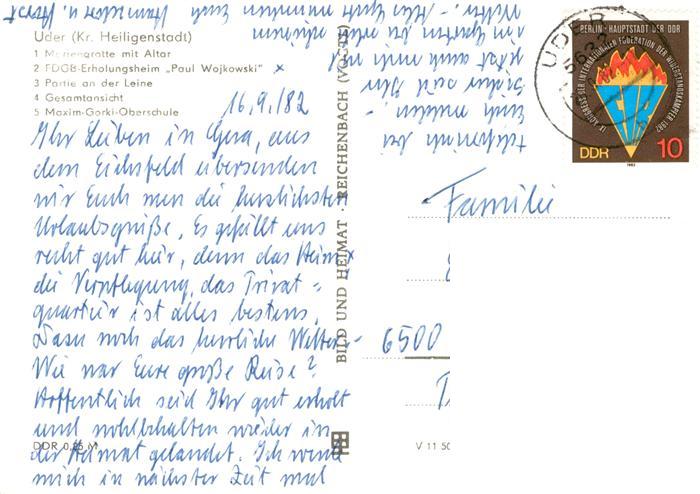 Uder (Kr. Heiligenstadt)
1 Mariengrotte mit Altar
2 FDGB-Erholungsheim „Paul Wojkowski" x
3 Partie an der Leine
4 Gesamtansicht
5 Maxim-Gorki-Oberschule
16.9.82
Ihr Lieben in Gera, aus
dem Eichsfeld übersenden
wir Euch nun die herzlichsten
Urlaubsgrüße. Es gefällt uns
recht gut hier, denn das Heim x
die Verpflegung, das Privat=
quartier ist alles bestens.
Dazu noch das herrliche Wetter –
Wie war Eure große Reise?
Hoffentlich seid Ihr gut erholt
und wohlbehalten wieder in
der Heimat gelandet. Ich werde
mich in nächster Zeit mal
telefonisch bei
Euch melden.
Sicher seid Ihr
jetzt auch mit
von Garten
Wetter. – Alles Gute wünschen Euch Hannelore u. Horst
DDR 0,25 M
BILD UND HEIMAT · REICHENBACH (VOGTL)
V 11 50
UDER
5632
BERLIN - HAUPTSTADT DER DDR
IX. KONGRESS DER INTERNATIONALEN FÖDERATION DER WIDERSTANDSKÄMPFER 1982
FIR
DDR 10
1982
Familie
6500